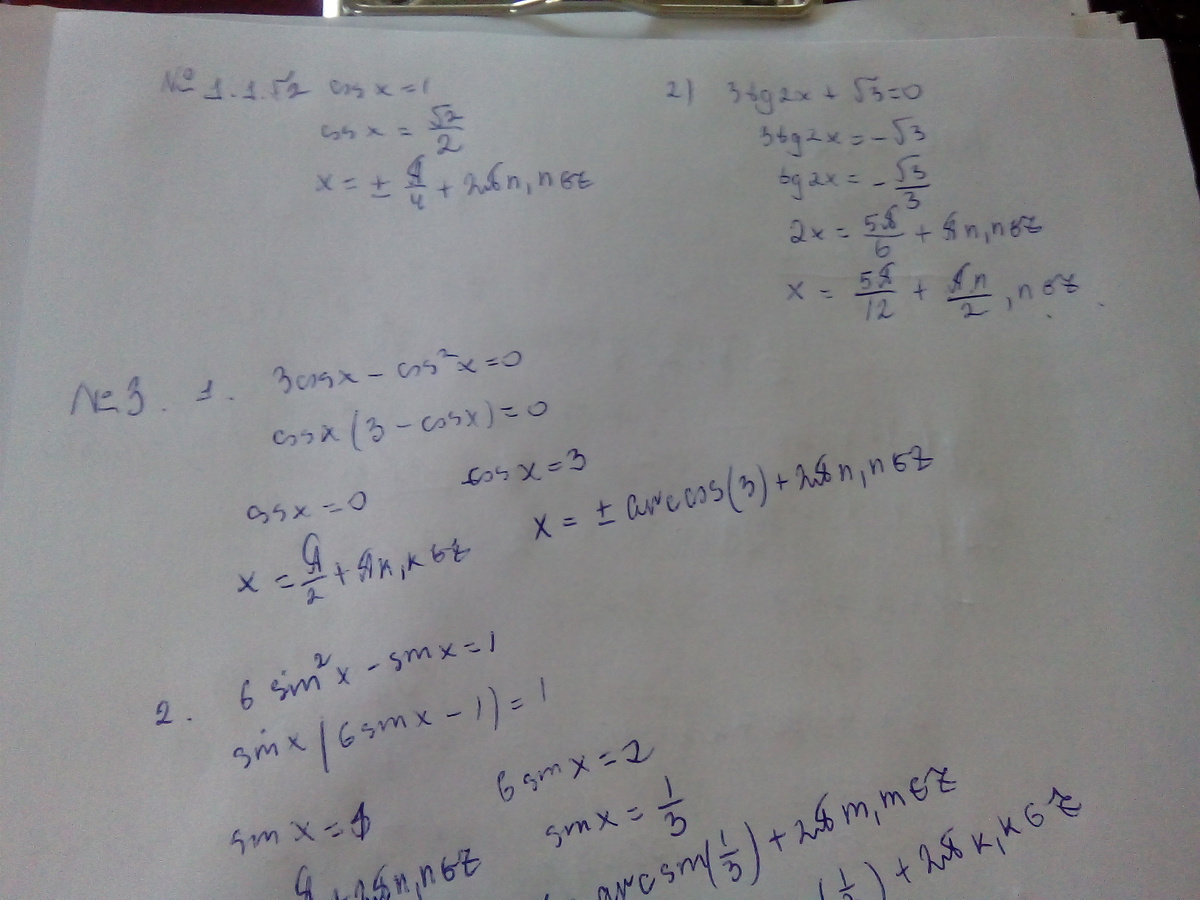 № 1. 1. √2 cos x = 1
cos x = √2/2
x = ± π/4 + 2πn, n∈Z
2) 3tg2x + √3 = 0
3tg2x = -√3
tg2x = -√3/3
2x = 5π/6 + πn, n∈Z
x = 5π/12 + πn/2, n∈Z
№3. 1. 3cosx - cos²x = 0
cosx (3 - cosx) = 0
cosx = 0 cosx = 3
x = π/2 + πk, k∈Z x = ± arccos(3) + 2πn, n∈Z
2. 6 sin²x - sinx = 1
sinx (6sinx - 1) = 1
sinx = 1 6sinx = 2
sinx = 1/3
π + 2πn, n∈Z arcsin(1/3) + 2πm, m∈Z
(1/ ) + 2πk, k∈Z